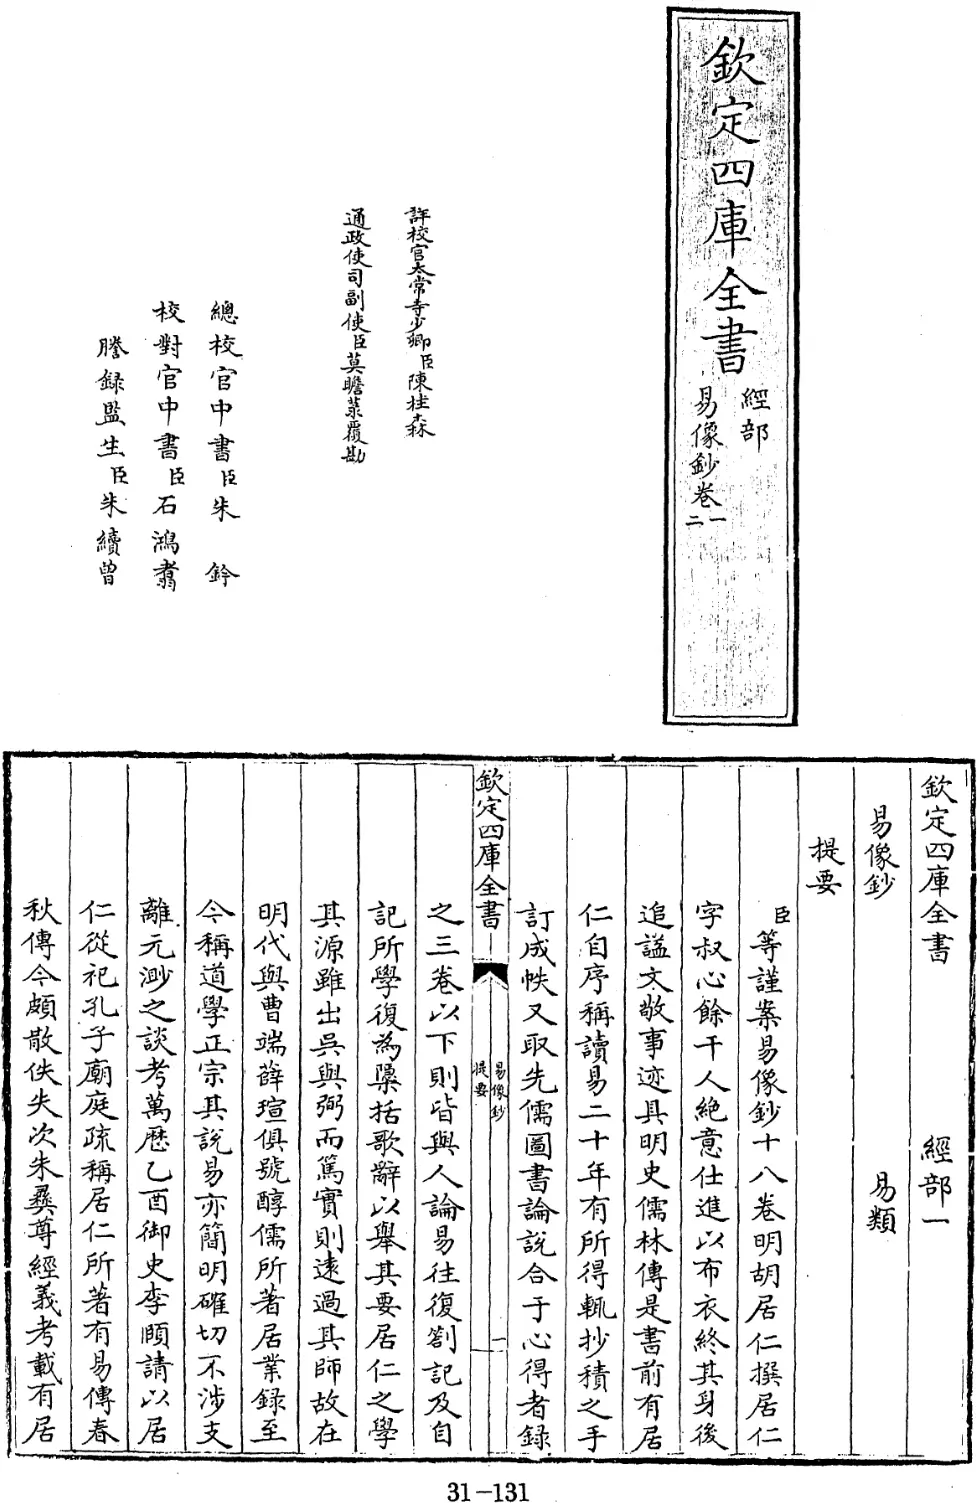 欽定四庫全書
經部
易像鈔卷一
二
詳校官太常寺少卿臣陳桂森
通政使司副使臣莫瞻菉覆勘
總校官中書臣朱鈐
校對官中書臣石鴻翥
謄録監生臣朱續曾
欽定四庫全書 經部一
易像鈔 易類
提要
臣等謹案易像鈔十八卷明胡居仁撰居仁
字叔心餘干人絶意仕進以布衣終其身後
追謚文敬事迹具明史儒林傳是書前有居
仁自序稱讀易二十年有所得輒抄積之手
訂成帙又取先儒圖書論説合于心得者錄
欽定四庫全書
易像鈔
提要
一
之三卷以下則皆與人論易往復劄記及自
記所學復為隱括歌辭以舉其要居仁之學
其源雖出吳與弼而篤實則遠過其師故在
明代與曹端薛瑄俱號醇儒所著居業録至
今稱道學正宗其說易亦簡明確切不涉支
離元渺之談考萬歷乙酉御史李頤請以居
仁從祀孔子廟庭疏稱居仁所著有易傳春
秋傳今頗散佚失次朱彝尊經義考載有居
31-131